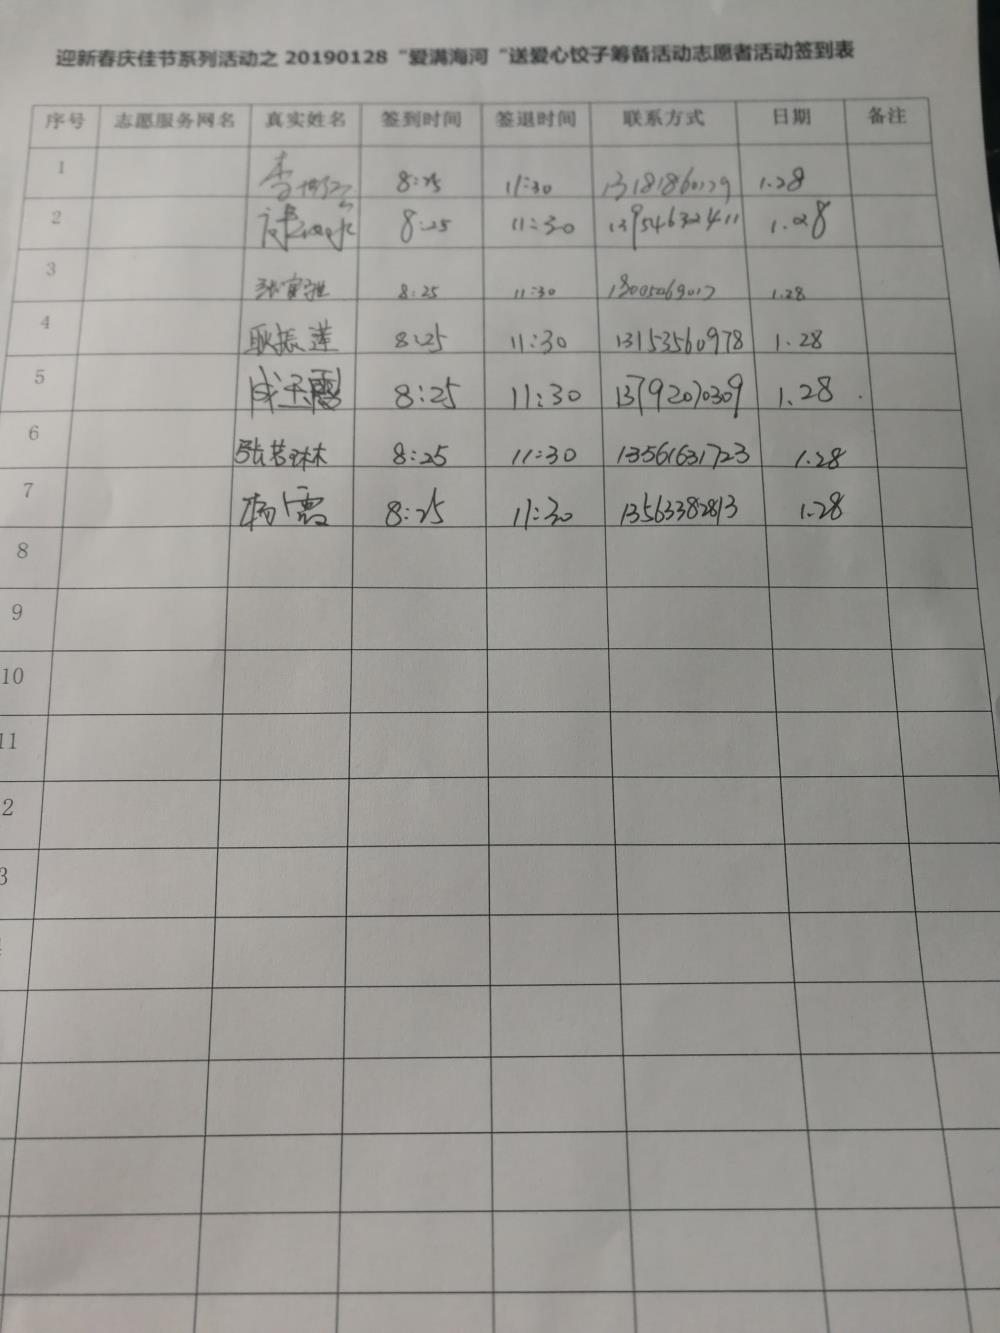 迎新春庆佳节系列活动之 20190128 “爱满海河 “送爱心饺子筹备活动志愿者活动签到表
序号 志愿服务网名 真实姓名 签到时间 签退时间 联系方式 日期 备注
1 李 8:25 11:30 1.28
2 8:25 11:30 13954632411 1.28
3 张 8:25 11:30 1.28
4 耿振莲 8:25 11:30 13153560978 1.28
5 8:25 11:30 13792070309 1.28
6 张 8:25 11:30 13561631723 1.28
7 杨霞 8:25 11:30 13563382813 1.28
8
9
10
11
2
3